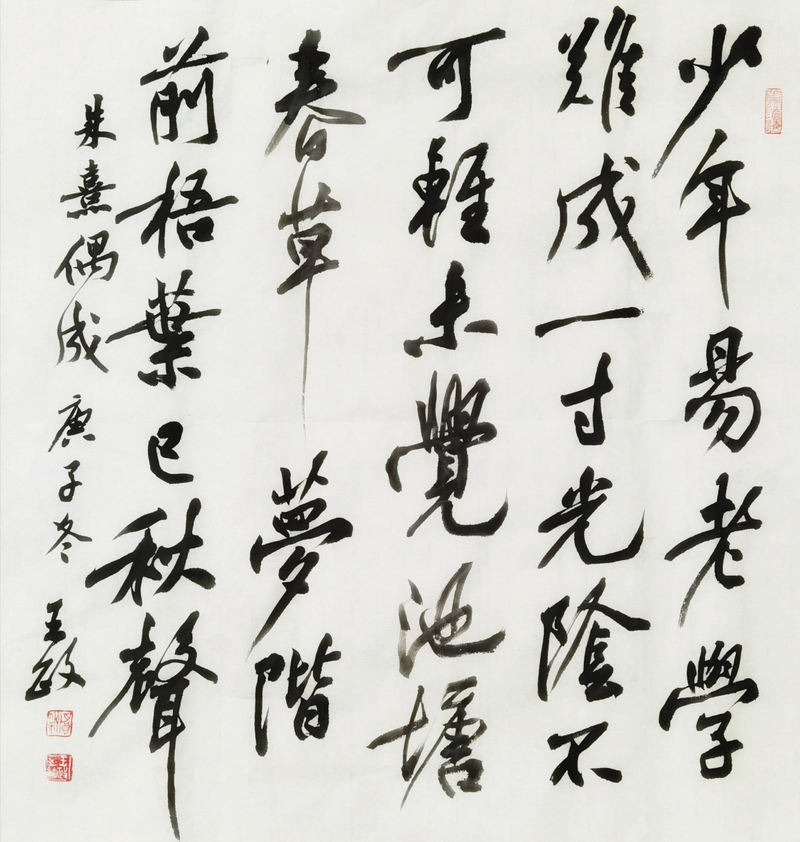 少年易老學
難成一寸光陰不
可輕未覺池塘
春草夢階
前梧葉已秋聲
朱熹偶成庚子冬王政